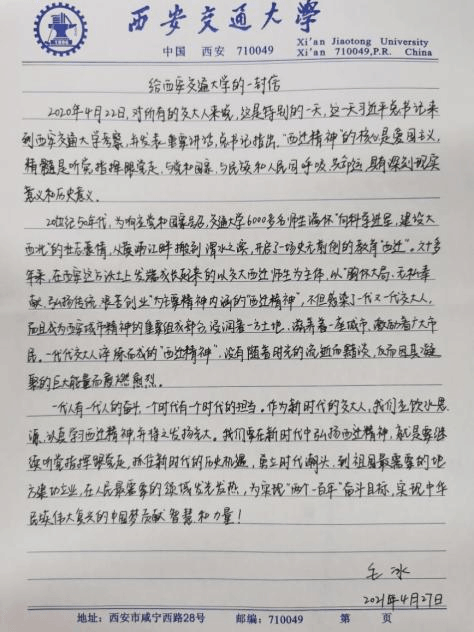 西安交通大学
中国 西安 710049
Xi'an Jiaotong University
Xi'an 710049,P.R. China
1896
给西安交通大学的一封信
2020年4月22日,对所有的交大人来说,这是特别的一天,这一天习近平总书记来
到西安交通大学考察,并发表重要讲话。总书记指出,“西迁精神”的核心是爱国主义,
精髓是听党指挥跟党走,与党和国家、与民族和人民同呼吸、共命运,具有深刻现实
意义和历史意义。
20世纪50年代,为响应党和国家号召,交通大学6000多名师生满怀“向科学进军,建设大
西北”的壮志豪情,从黄浦江畔搬到渭水之滨,开启了一场史无前例的教育“西迁”。六十多
年来,在西安这片沃土上发端成长起来的以交大西迁师生为主体,以“胸怀大局、无私奉
献、弘扬传统、艰苦创业”为主要精神内涵的“西迁精神”,不但感染了一代又一代交大人,
而且成为西安城市精神的重要组成部分,浸润着一方土地、滋养着一座城市、激励着广大市
民。一代代交大人淬炼而成的“西迁精神”,没有随着时光的流逝而黯淡,反而因其凝
聚的巨大能量而愈燃愈烈。
一代人有一代人的奋斗,一个时代有一个时代的担当。作为新时代的交大人,我们当饮水思
源,认真学习西迁精神,并将之发扬光大。我们要在新时代中弘扬西迁精神,就是要继
续听党指挥跟党走,抓住新时代的历史机遇,勇立时代潮头,到祖国最需要的地
方建功立业,在人民最需要的领域发光发热,为实现“两个一百年”奋斗目标,实现中华
民族伟大复兴的中国梦贡献智慧和力量!
毛冰
2021年4月27日
地址:西安市咸宁西路28号 邮编:710049 第 页